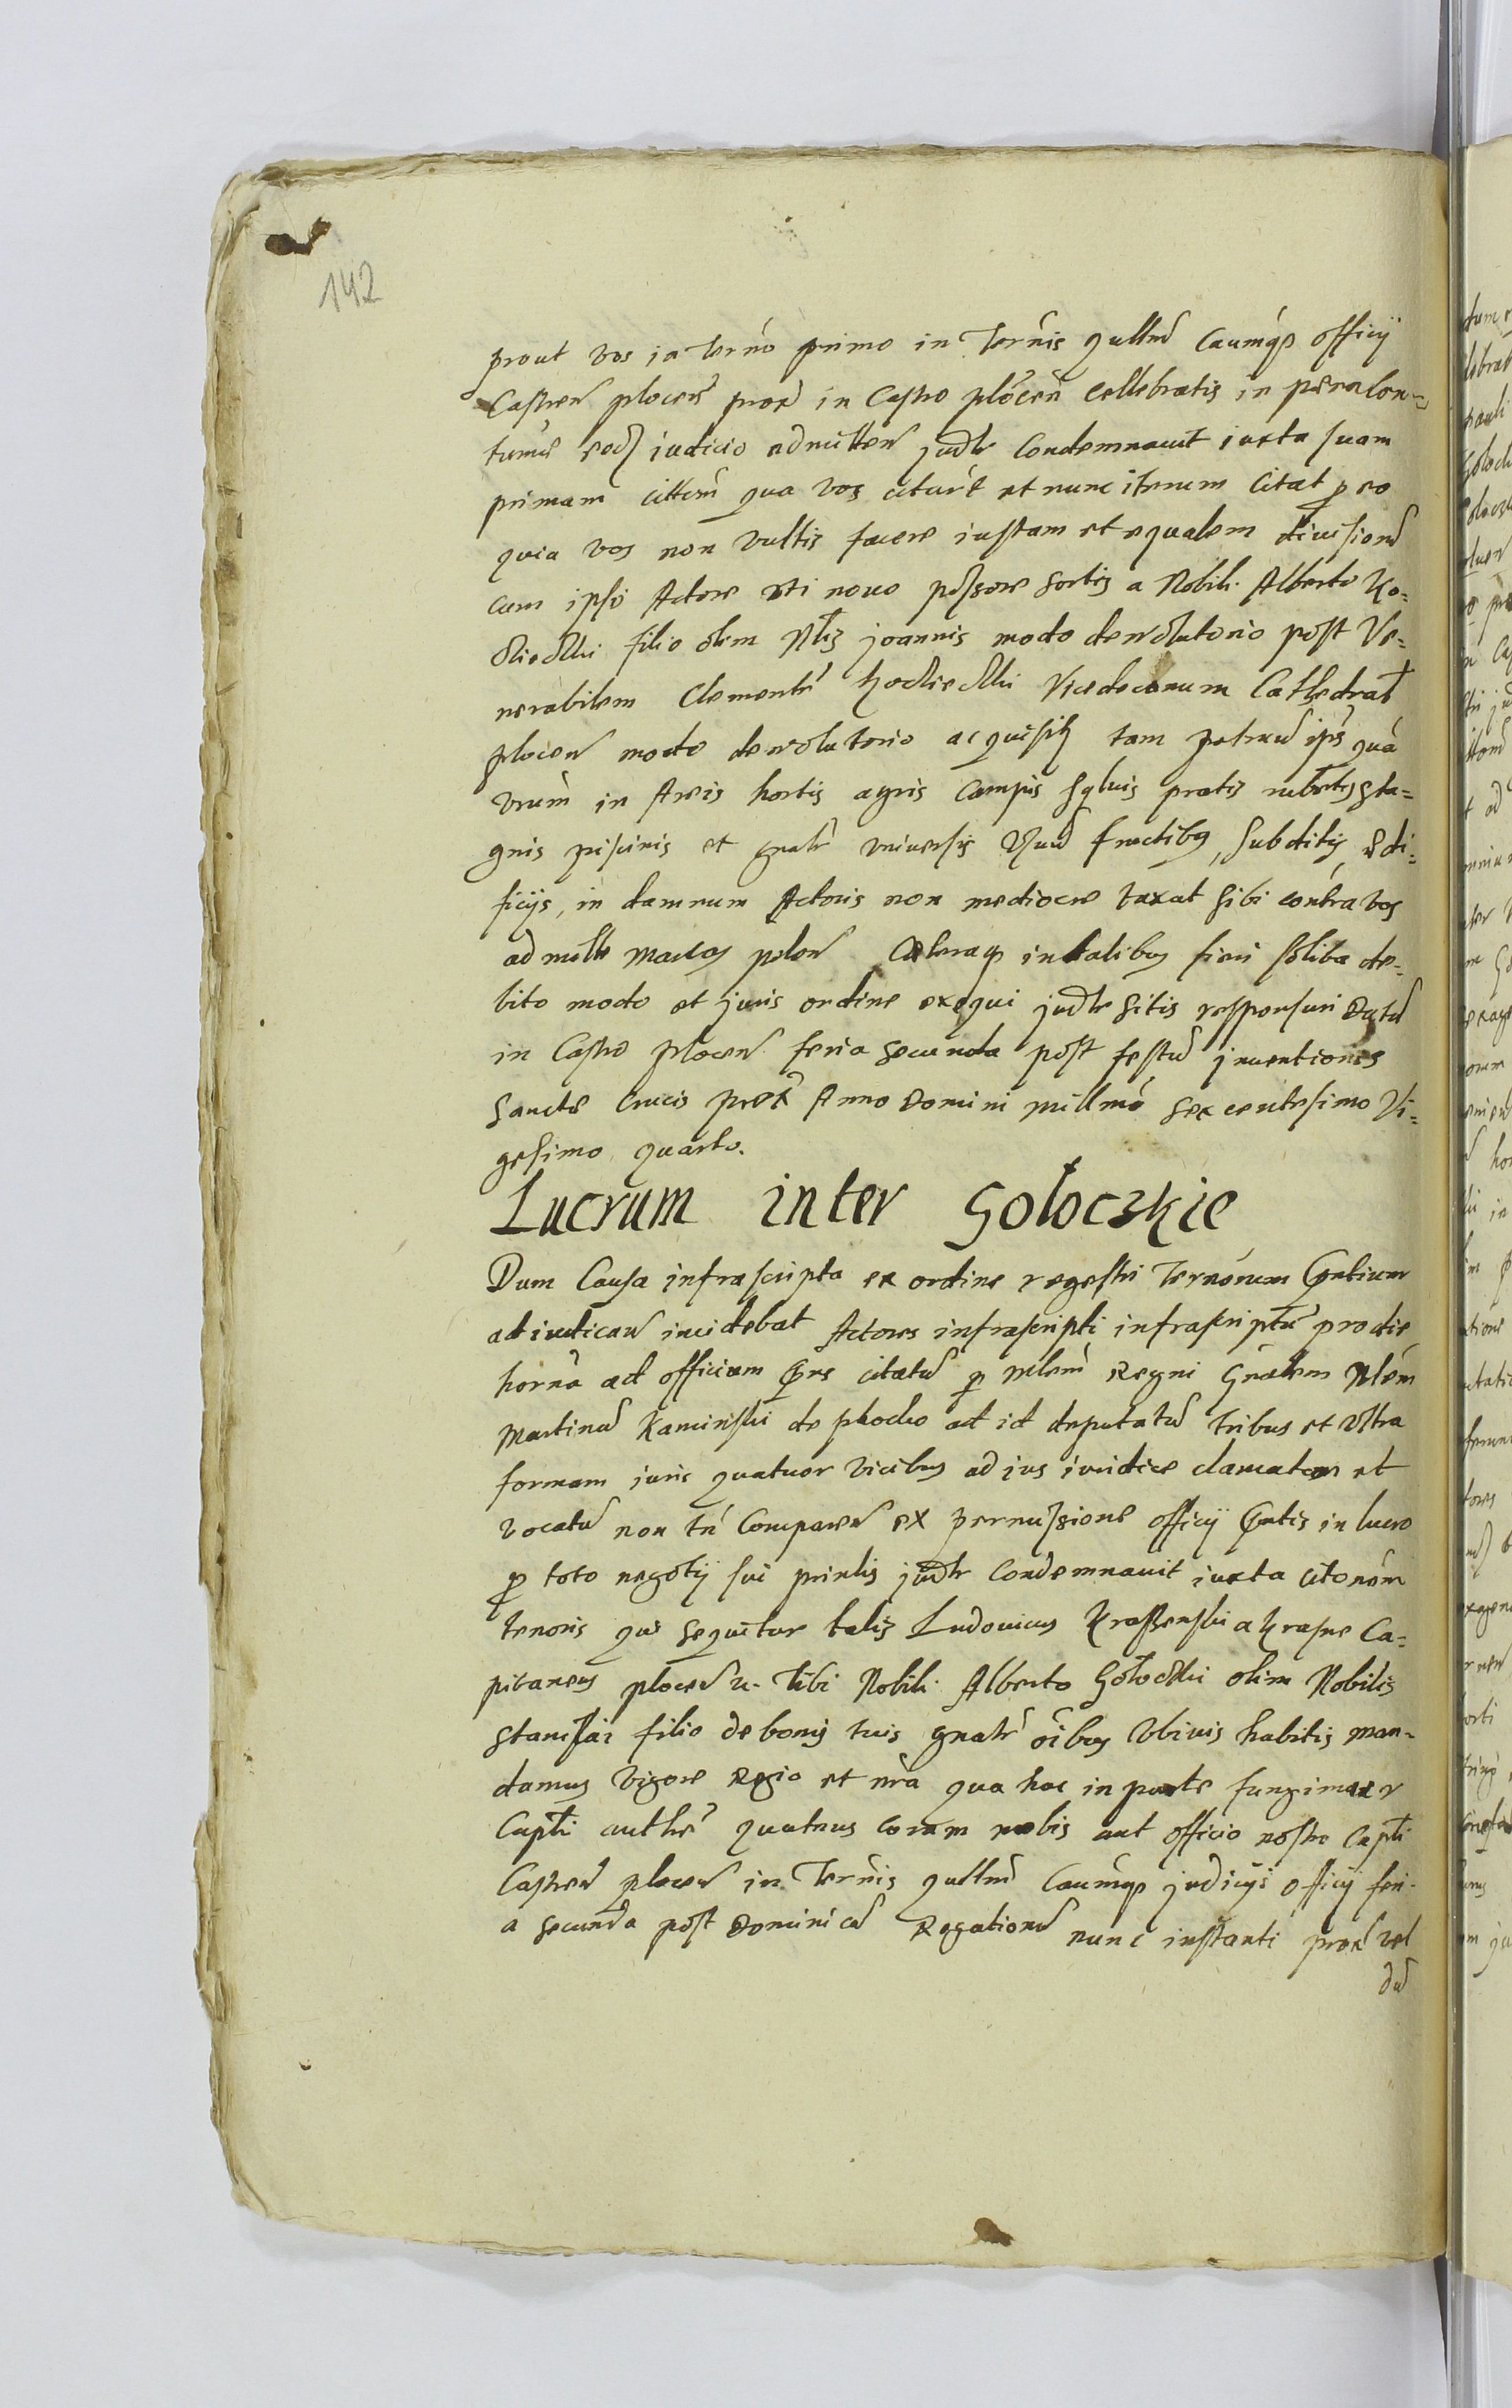 142
prout vos in Terno primo in Ternis qullm Caumqȝ officij
Castren plocen prox in Castro plocen cellebratis in pœna Con-
tumę eodȝ iudicio admitten judlr Condemnauit iuxta suam
primam citteom qua vos citauit et nunc iterum Citat p eo
quia vos non vultis facere iustam et equalem diuisionē
cum ipso Actore uti nouo possore sortis a Nobili Alberto Ko-
filio olim Nlis joannis modo deuolutorio post Ve-
nerabilem Clementē Vicedecanum Cathedral
plocen modo deuolutorio acquisitȝ tam ipē quā
vnum in Areis hortis agris Campis syluis pratis rubetis sta-
gnis piscinis et gnalr vniuersis fructibȝ, subditis, ędi-
ficijs, in damnum Actoris non mediocre taxat sibi contra vos
ad mille marcas polon Cęteraqȝ in talibȝ fieri solita de-
bito modo et juris ordine exequi judlr sitis responsuri Datū
in Castro plocen feria secunda post festū jnuentionis
Sanctę Crucis prox Anno Domini millmo sexcentesimo Vi-
gesimo quarto.
Lucrum inter Gołoczkie
Dum Causa infrascripta ex ordine regestri Ternorum Pntium
ad iudican incidebat Actores infrascripti infrascriptū pro die
horna ad officium Pns citatū p mlem Regni Gnalem Nlem
Martinū Kaminski de plocko ad id deputatū tribus et vltra
formam iuris quatuor vicibȝ ad ius iuridice clamatum et
vocatū non tn Comparen ex permissione officij Pntis in lucro
p toto negotij sui prinlis judlr Condemnauit iuxta citonem
tenoris qui sequitur talis Ludouicus Krassenski a Krasne Ca-
pitaneus plocen &c. tibi Nobili Alberto Gołocki olim Nobilis
Stanislai filio de bonis tuis gnalr oibȝ vbiuis habitis man-
damus vigore Regio et nra qua hac in parte fungimur
Capli authe quatenus coram nobis aut officio nostro Capli
Castren plocen in Ternis qullm Caumqȝ judicijs officij feri-
a secunda post Dominicā Rogationū nunc instanti prox vel
dū